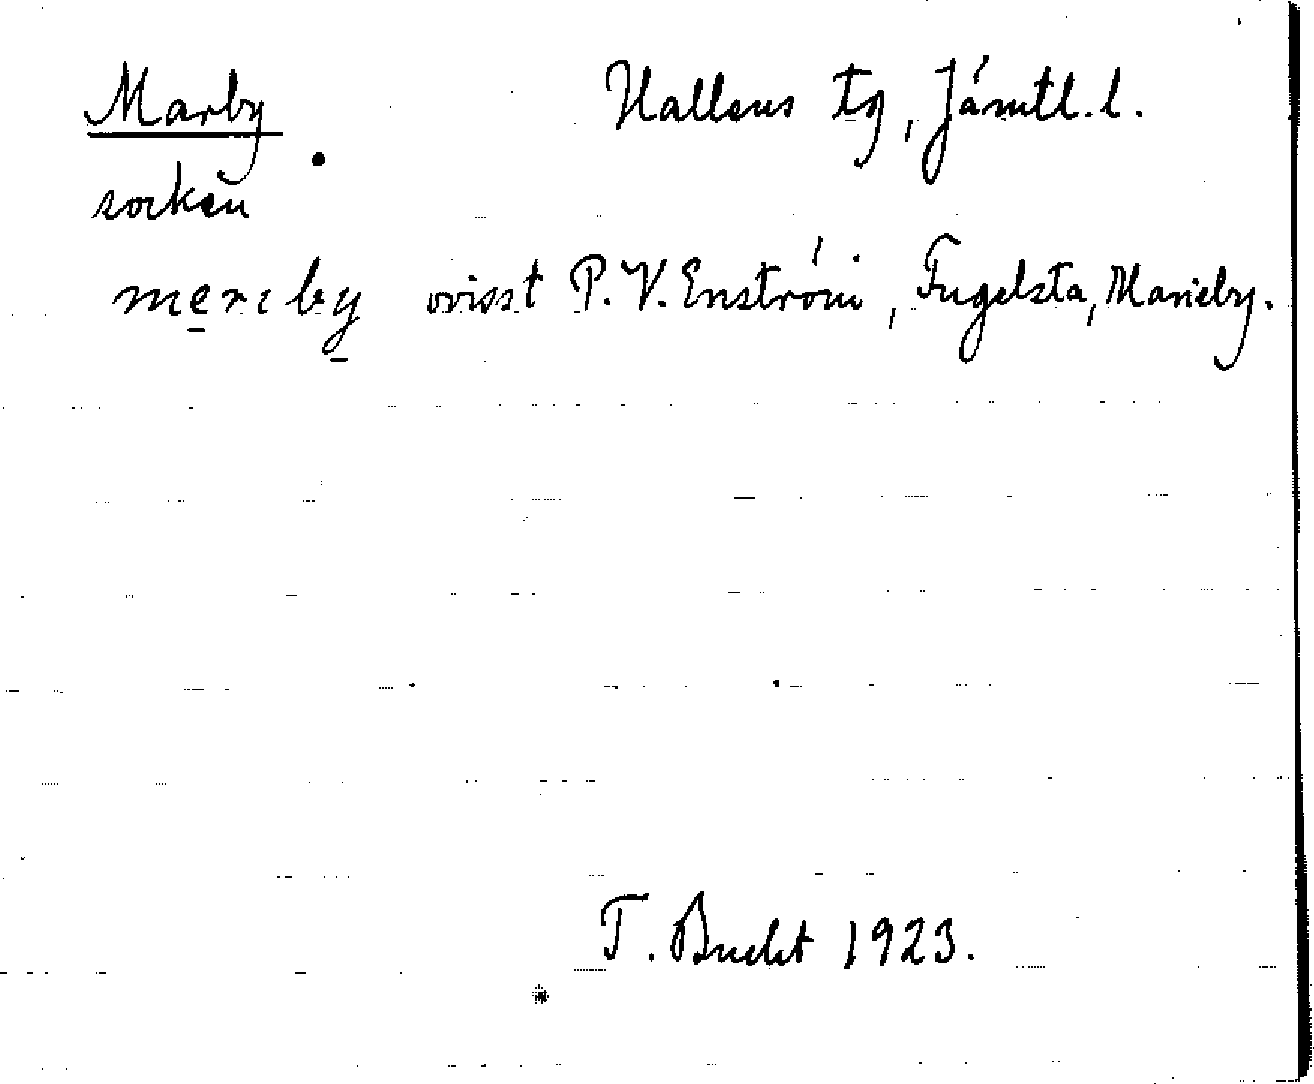 Marby Hallens tg, Jämtl. l.
socken
mẹrɩbỵ visst P. V. Enström, Fugelsta, Marieby.
T. Bucht 1923.